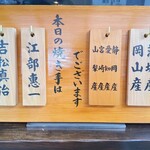 岡山産
静岡産
愛知産
宮崎産
山梨産
でございます
本日の焼き手は
江部恵一
吉松真治